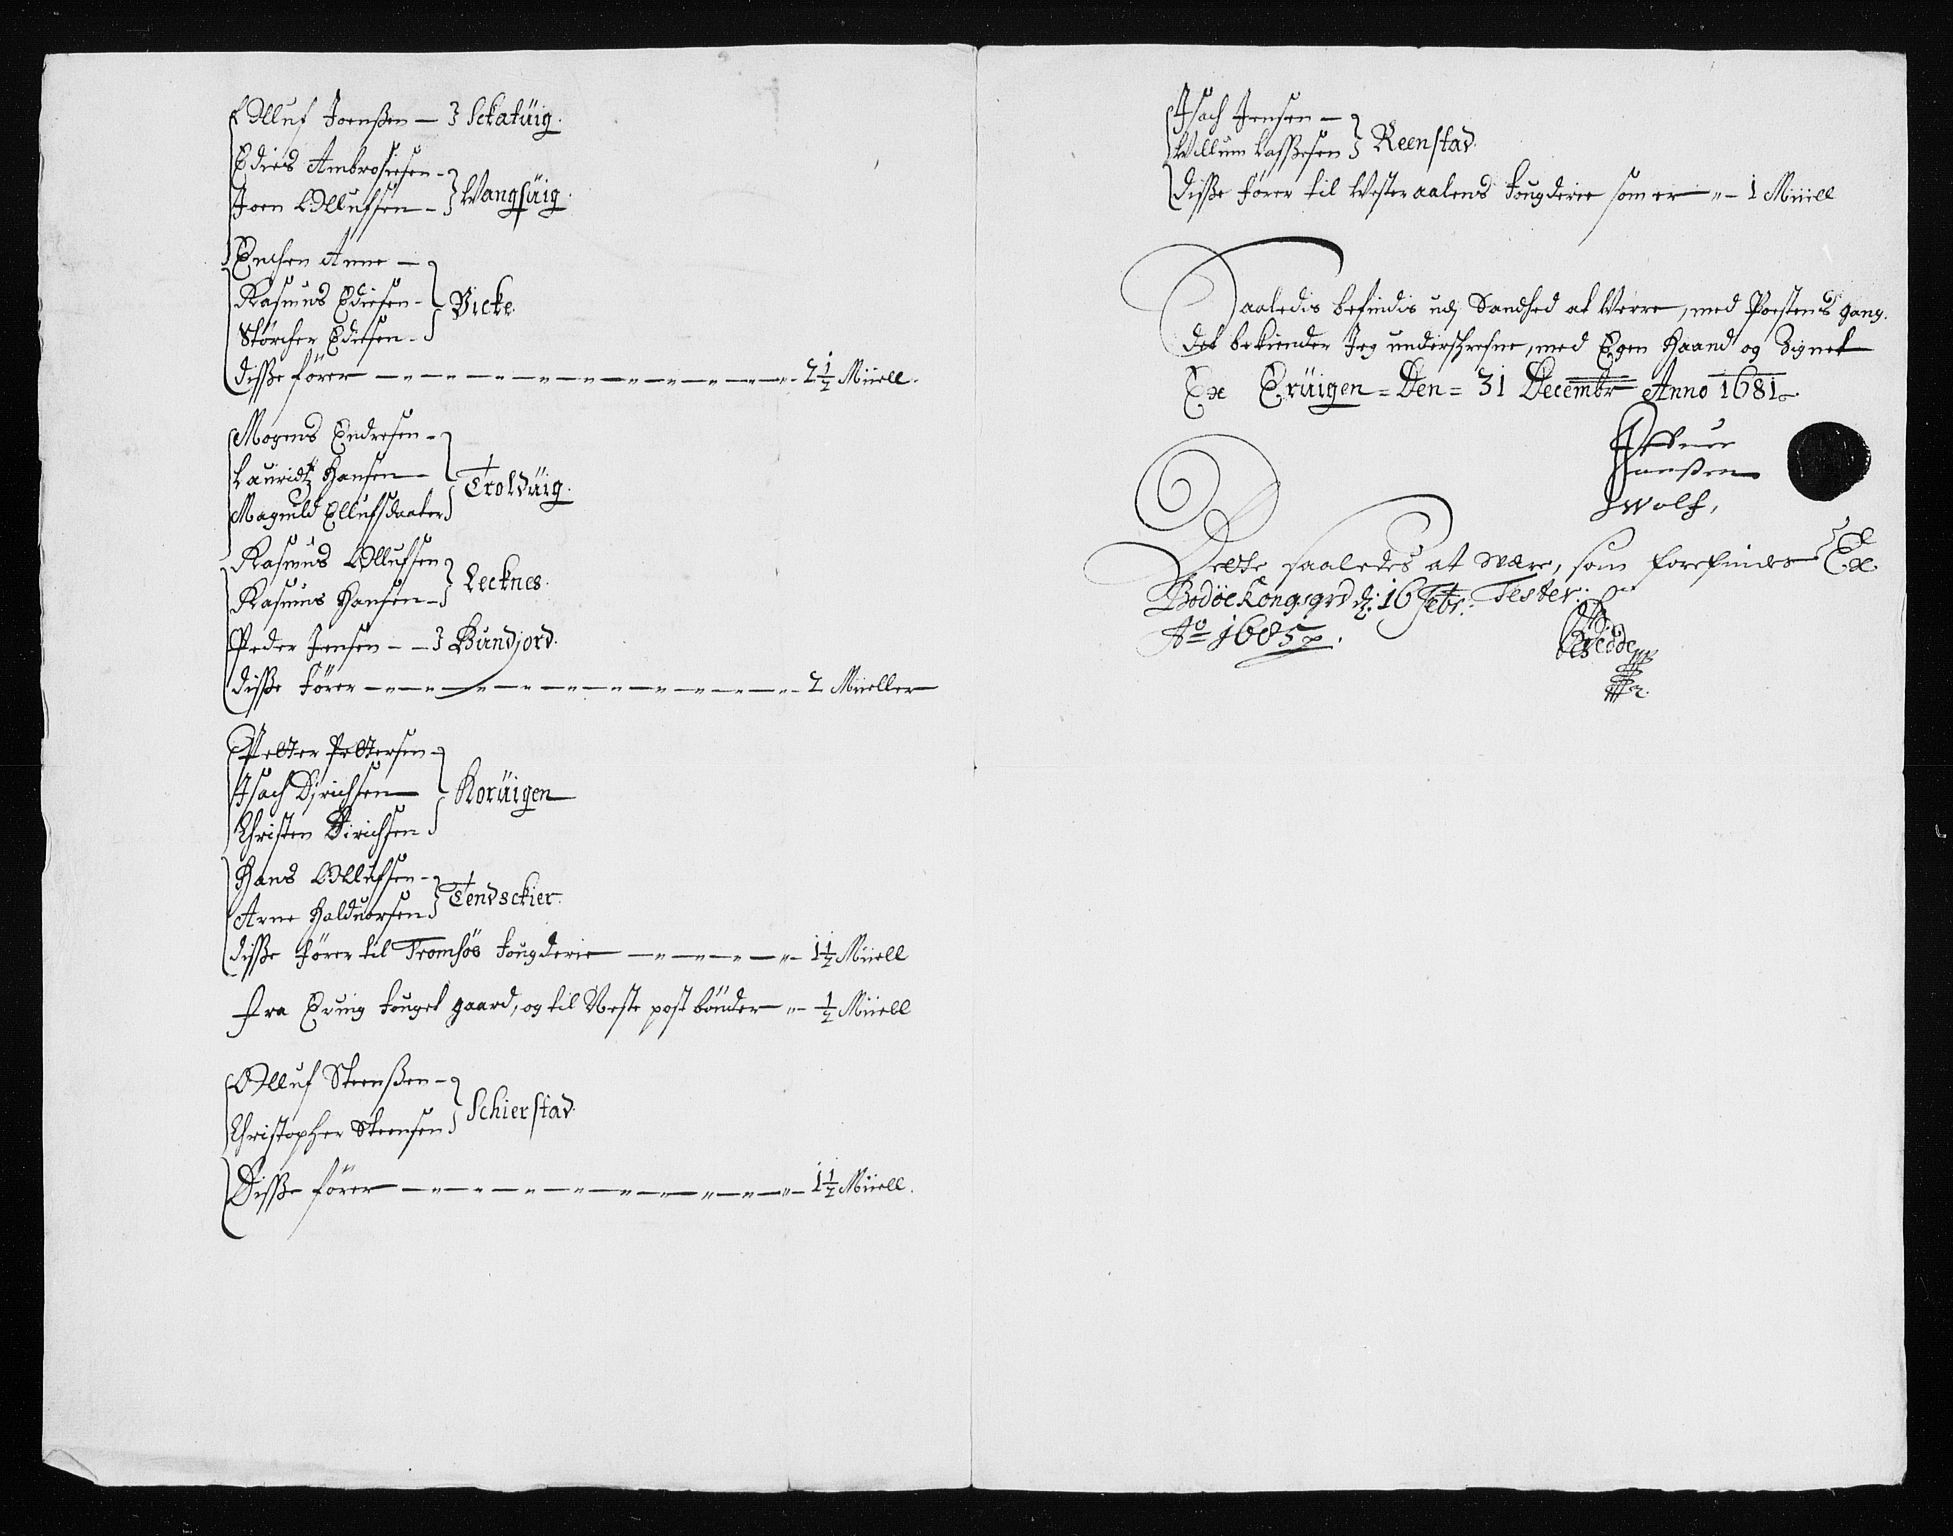 Olluf Joenßen — } Sckatüig.
Edies Ambrosiesen -
Joen Ollufsen - } Wangsüig.
Enchen Anne —
Rasmus Ediesen -
Størcher Ediesen - } Vicke.
disße fører — 2 1/2 Miiell.
Mogens Endresen -
Lauridtz Hansen —
Magnild Ellufsdaater } Trolvüig.
Rasmus Ollufsen
Rasmus Hansen - } Lecknes.
Peder Jensen - - } Bundjord.
disße fører — 2 Miieller
Petter Pettersen -
Isach Dirichsen
Christen Dirichsen } Korüigen
Hans Ollufsen -
Arne Halduorsen } Tendsckier.
disße fører til Tromsøs fougderie — 1 1/2 Miiell
fra Eruig fouget gaard, og til Neste post bønder — 1/2 Miiell
Olluf Steenßen -
Christopher Steensen } Schierstad.
Disße fører — 1 1/2 Miiell.
Isach Jensen —
Willum Lasßesen } Reenstad.
disße fører til Westeraalens fougderie som er — 1 Miiell
Saaledis befindis udj Sandhed at Verre, med Postens gang.
det bekiender Jeg underschrefne, med Egen Haand og Signet
Ex Erüigen = Den = 31 Decembr Anno 1681.
Hanßen
Wolf,
Dette saaledes at være, som forefindes Ex.
Bodöe Kongsgrd d: 16 Febr: Tester:
Ao 1685